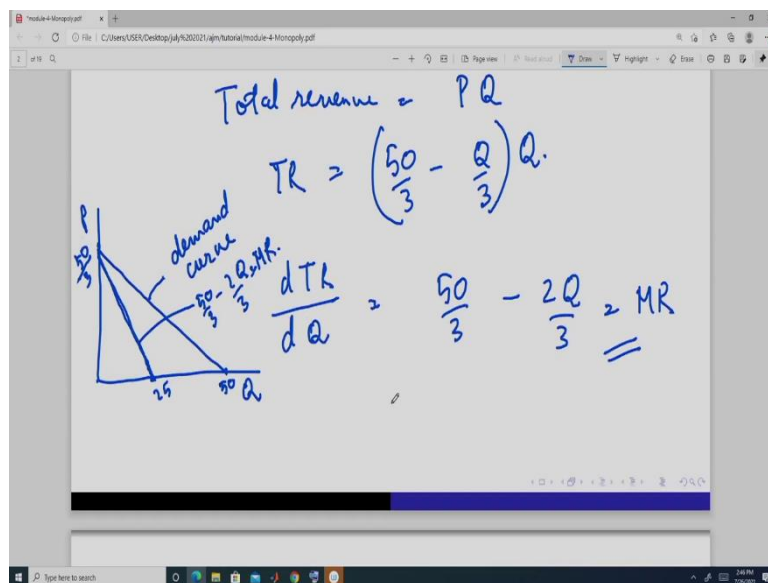 *module-4-Monopoly.pdf
File | C:/Users/USER/Desktop/july%202021/ajm/tutorial/module-4-Monopoly.pdf
2 of 19
Page view
Read aloud
Draw
Highlight
Erase
Total revenue = PQ
TR = (50/3 - Q/3) Q.
P
50/3
demand
curve
50/3 - 2Q/3 = MR.
25
50
Q
dTR/dQ = 50/3 - 2Q/3 = MR
Type here to search
2:46 PM